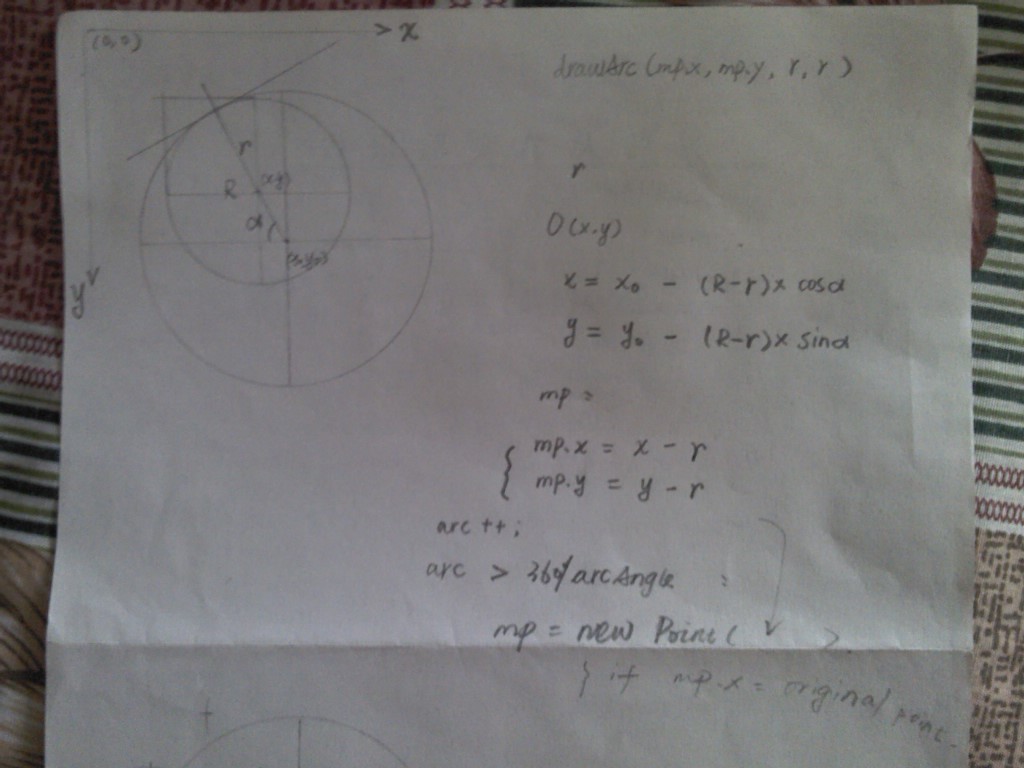 (0,0)
x
drawArc (mp.x, mp.y, r, r)
r
R
(x.y)
α
y
r
O(x.y)
x = x₀ - (R-r)x cosα
y = y₀ - (R-r)x sinα
mp =
{ mp.x = x - r
mp.y = y - r
arc ++;
arc > 360/arcAngle :
mp = new Point( ).
} if mp.x = original point.